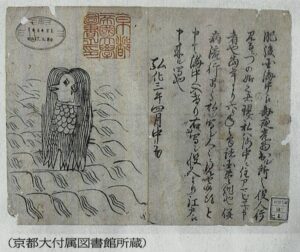 肥後国海中え毎夜光物出ル所之役人行
見るニづの如く者現ス私ハ海中ニ住アマビヱト申
者也当年より六ヶ年之間諸国豊作也併
病流行早々私ヲ写シ人々ニ見セ候得と
申て海中へ入けり右ハ写シ役人より江戸え
申来ル写也
弘化三年四月中旬
(京都大付属図書館所蔵)